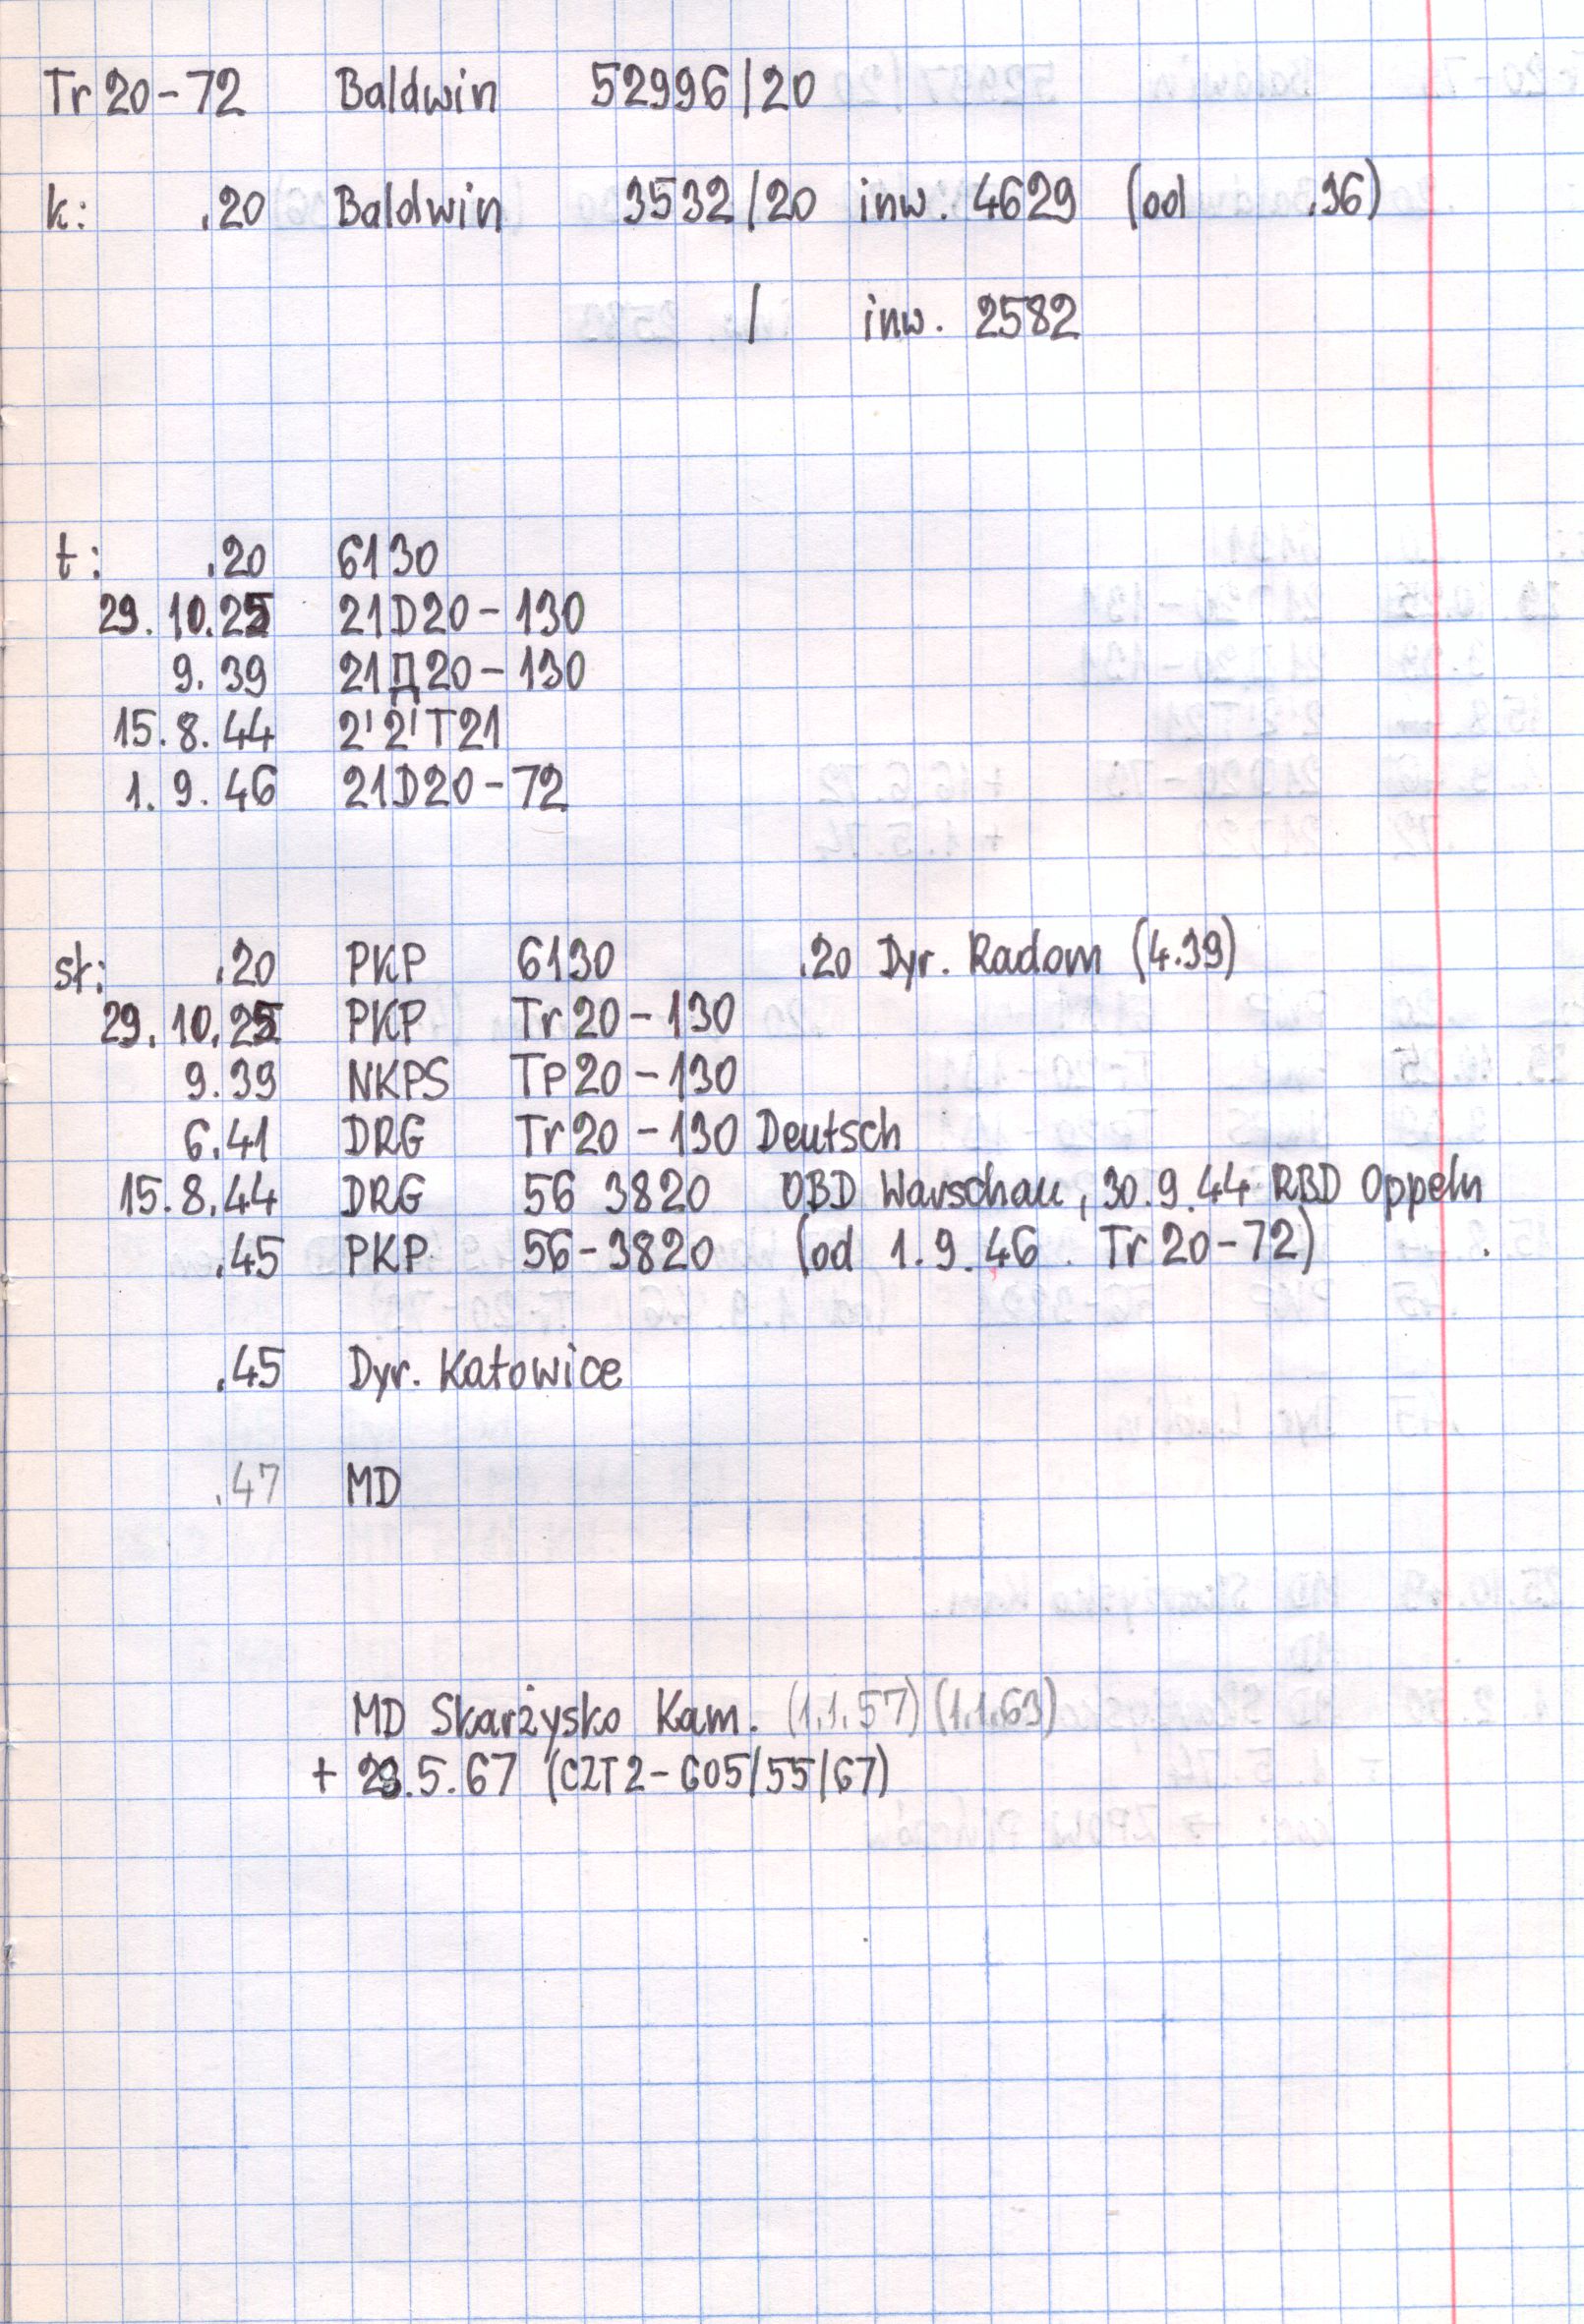 Tr 20-72 Baldwin 52996/20
k: .20 Baldwin 3532/20 inw. 4629 (od .36)
/ inw. 2582
t: .20 6130
29.10.25 21D20-130
9.39 21Д20-130
15.8.44 2'2'T21
1.9.46 21D20-72
st: .20 PKP 6130 .20 Dyr. Radom (4.39)
29.10.25 PKP Tr 20-130
9.39 NKPS Tp 20-130
6.41 DRG Tr 20-130 Deutsch
15.8.44 DRG 56 3820 OBD Warschau, 30.9.44 RBD Oppeln
.45 PKP 56-3820 (od 1.9.46 Tr 20-72)
.45 Dyr. Katowice
.47 MD
MD Skarżysko Kam. (1.1.57) (1.1.63)
+ .5.67 (CZT2-605/55/67)